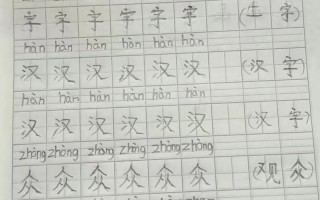 字 字 字 字 字 字 (土 字)
hàn hàn hàn hàn hàn hàn
汉 汉 汉 汉 汉 汉 (汉 字)
hàn hàn hàn hàn hàn hàn
汉 汉 汉 汉 汉 汉 (汉 字)
zhòng zhòng zhòng zhòng zhòng zhòng
众 众 众 众 众 众 (观 众)